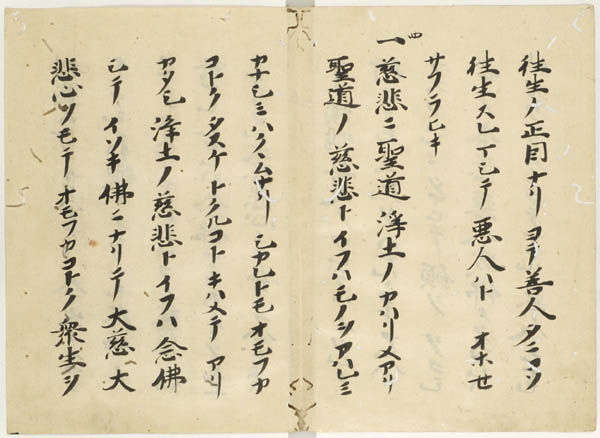 往生ノ正因ナリヨテ善人タニコソ
往生スレマシテ悪人ハト オホセ
サフラヒキ
四
一 慈悲ニ聖道浄土ノカハリメアリ
聖道ノ慈悲トイフハモノヲアハレミ
カナシミハククムナリ シカレトモオモフカ
コトクタスケトクルコトキハメテアリ
カタシ浄土ノ慈悲トイフハ念佛
シテイソキ佛ニナリテ大慈大
悲心ヲモテオモフカコトク衆生ヲ